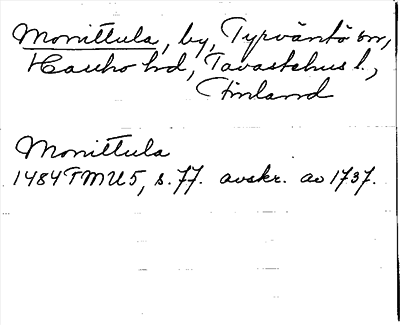 Monittula, by, Tyrväntö sn,
Hauho hd, Tavastehus l.,
Finland
Monittula
1484 TMU 5, s. 77. avskr. av 1737.